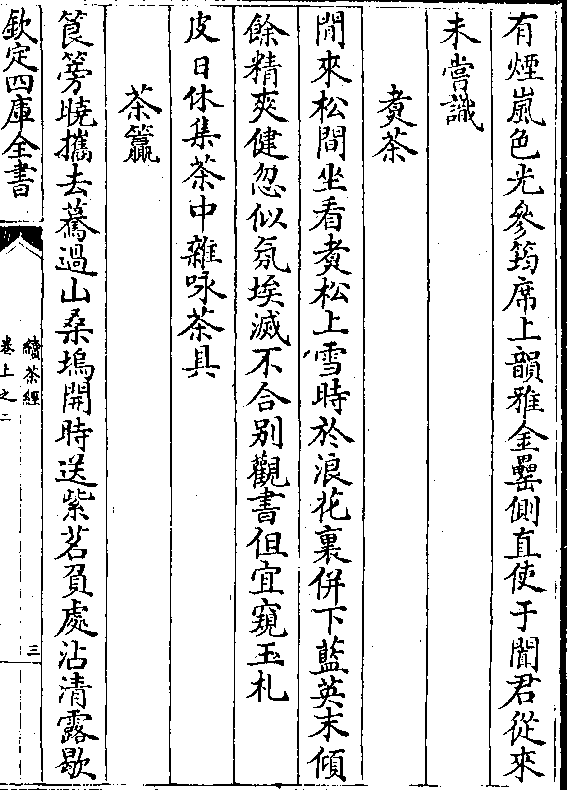 有煙嵐色光參筠席上韻雅金罍側直使于闐君從來
未嘗識
煑茶
閒來松間坐看煑松上雪時於浪花裏併下藍英末傾
餘精爽健忽似氛埃滅不合别觀書但宜窺玉札
皮日休集茶中雜咏茶具
茶籯
筤篣曉攜去驀過山桑塢開時送紫茗負處沾清露歇
欽定四庫全書
續茶經
卷上之二
三